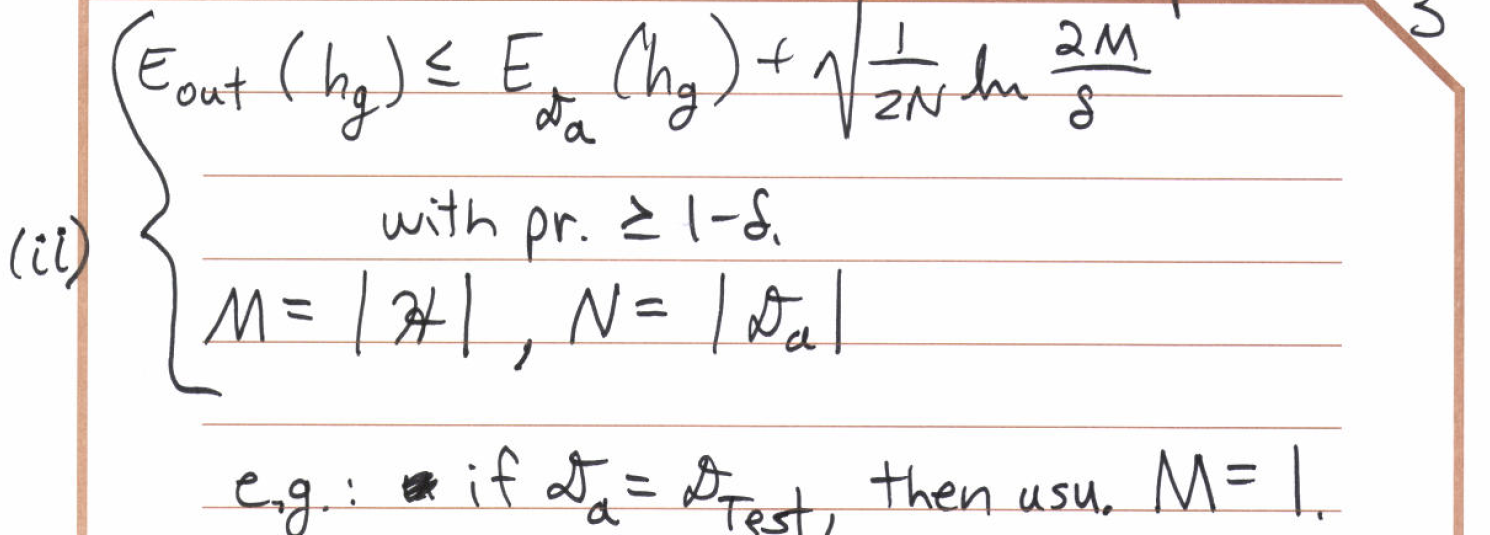 3
E_out (h_g) ≤ E_𝒟a (h_g) + √(1/2N ln 2M/δ)
with pr. ≥ 1-δ.
(ii)
M = |ℋ|, N = |𝒟a|
e.g.: if 𝒟a = 𝒟Test, then usu. M = 1.